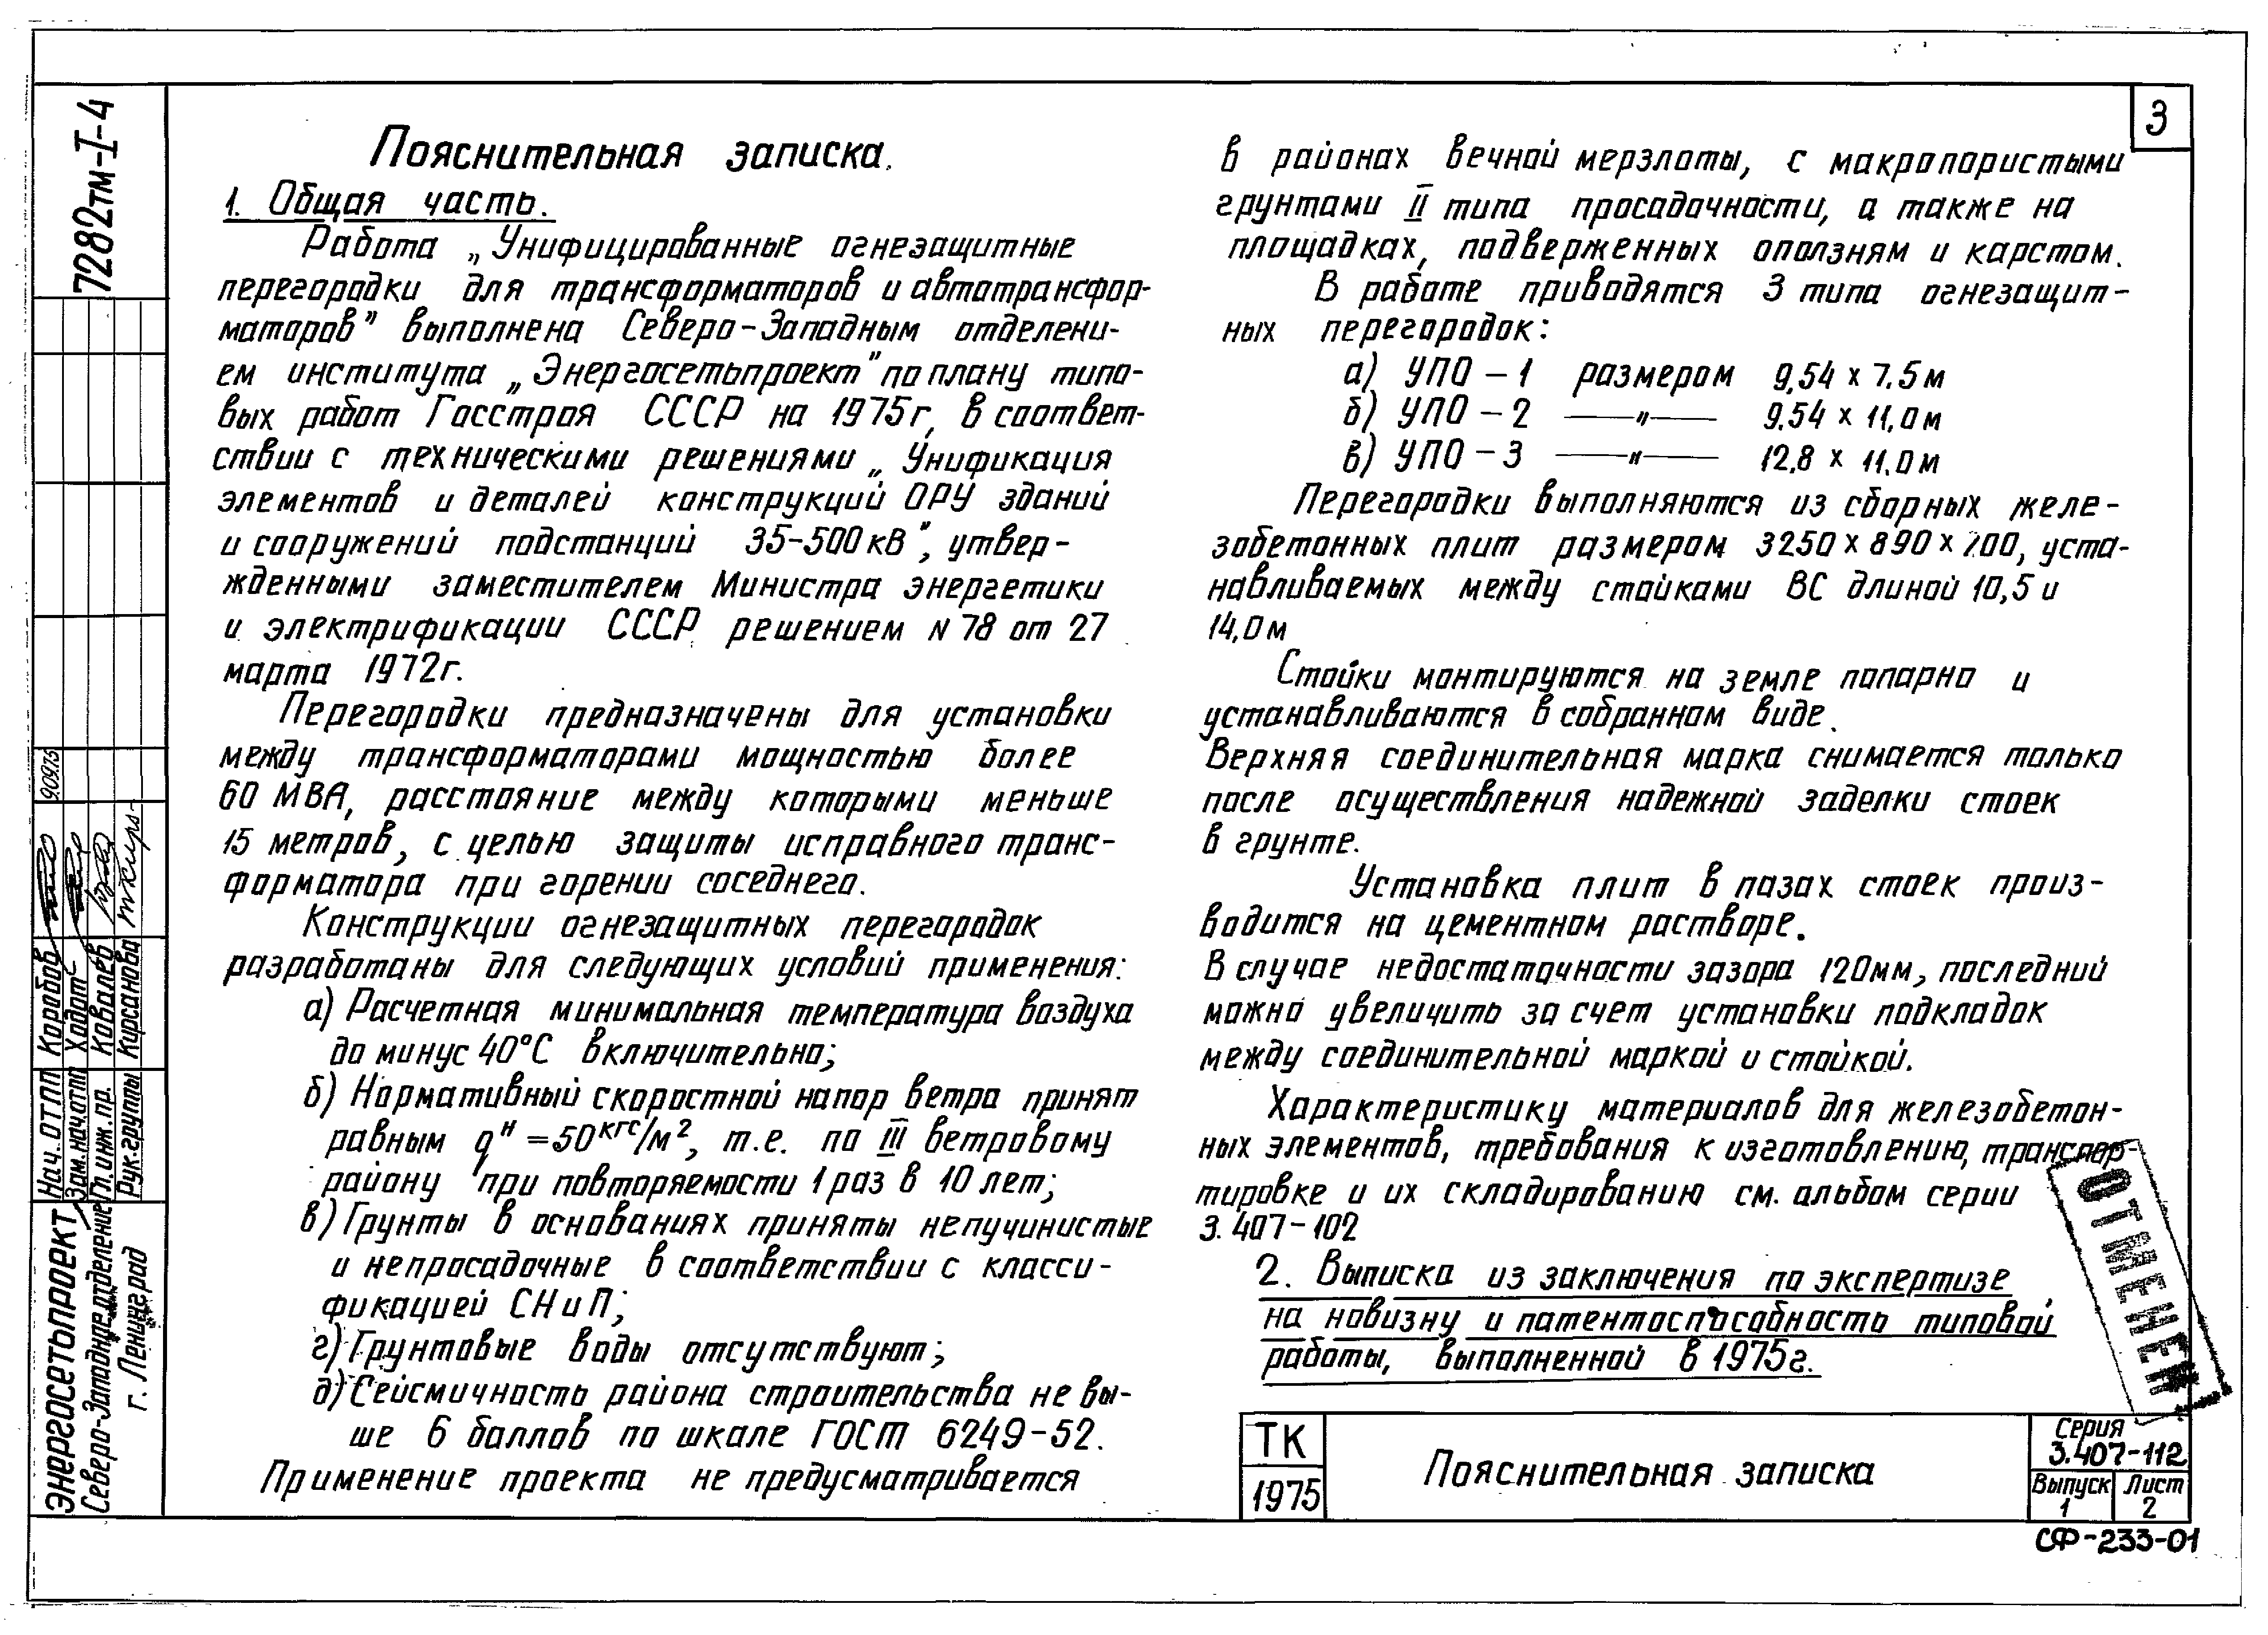 3
7282тм-I-4
Пояснительная записка.
1. Общая часть.
Работа „Унифицированные огнезащитные
перегородки для трансформаторов и автотрансфор-
маторов” выполнена Северо-Западным отделени-
ем института „Энергосетьпроект” по плану типо-
вых работ Госстроя СССР на 1975г, в соответ-
ствии с техническими решениями „Унификация
элементов и деталей конструкций ОРУ зданий
и сооружений подстанций 35-500кВ”, утвер-
жденными заместителем Министра энергетики
и электрификации СССР решением N78 от 27
марта 1972г.
Перегородки предназначены для установки
между трансформаторами мощностью более
60 МВА, расстояние между которыми меньше
15 метров, с целью защиты исправного транс-
форматора при горении соседнего.
Конструкции огнезащитных перегородок
разработаны для следующих условий применения:
а) Расчетная минимальная температура воздуха
до минус 40°С включительно;
б) Нормативный скоростной напор ветра принят
равным qн = 50 кгс/м², т.е. по III ветровому
району при повторяемости 1 раз в 10 лет;
в) Грунты в основаниях приняты непучинистые
и непросадочные в соответствии с класси-
фикацией СНиП;
г) Грунтовые воды отсутствуют;
д) Сейсмичность района строительства не вы-
ше 6 баллов по шкале ГОСТ 6249-52.
Применение проекта не предусматривается
в районах вечной мерзлоты, с макропористыми
грунтами II типа просадочности, а также на
площадках, подверженных оползням и карстом.
В работе приводятся 3 типа огнезащит-
ных перегородок:
а) УПО - 1 размером 9,54 х 7.5м
б) УПО - 2 —„— 9.54 х 11,0м
в) УПО - 3 —„— 12,8 х 11,0м
Перегородки выполняются из сборных желе-
зобетонных плит размером 3250х890х200, уста-
навливаемых между стойками ВС длиной 10,5 и
14,0м
Стойки монтируются на земле попарно и
устанавливаются в собранном виде.
Верхняя соединительная марка снимается только
после осуществления надежной заделки стоек
в грунте.
Установка плит в пазах стоек произ-
водится на цементном растворе.
В случае недостаточности зазора 120мм, последний
можно увеличить за счет установки подкладок
между соединительной маркой и стойкой.
Характеристику материалов для железобетон-
ных элементов, требования к изготовлению, транспор-
тировке и их складированию см. альбом серии
3.407-102
2. Выписка из заключения по экспертизе
на новизну и патентоспособность типовой
работы, выполненной в 1975г.
ОТМЕНЕН
ТК
1975
Пояснительная записка
Серия
3.407-112
Выпуск
1
Лист
2
СФ-233-01
Энергосетьпроект
Северо-Западное отделение
г. Ленинград
Нач. ОТПП Коробов 9.09.75
Зам.нач.отп Ходот
Гл.инж.пр. Ковалев
Рук.группы Кирсанова